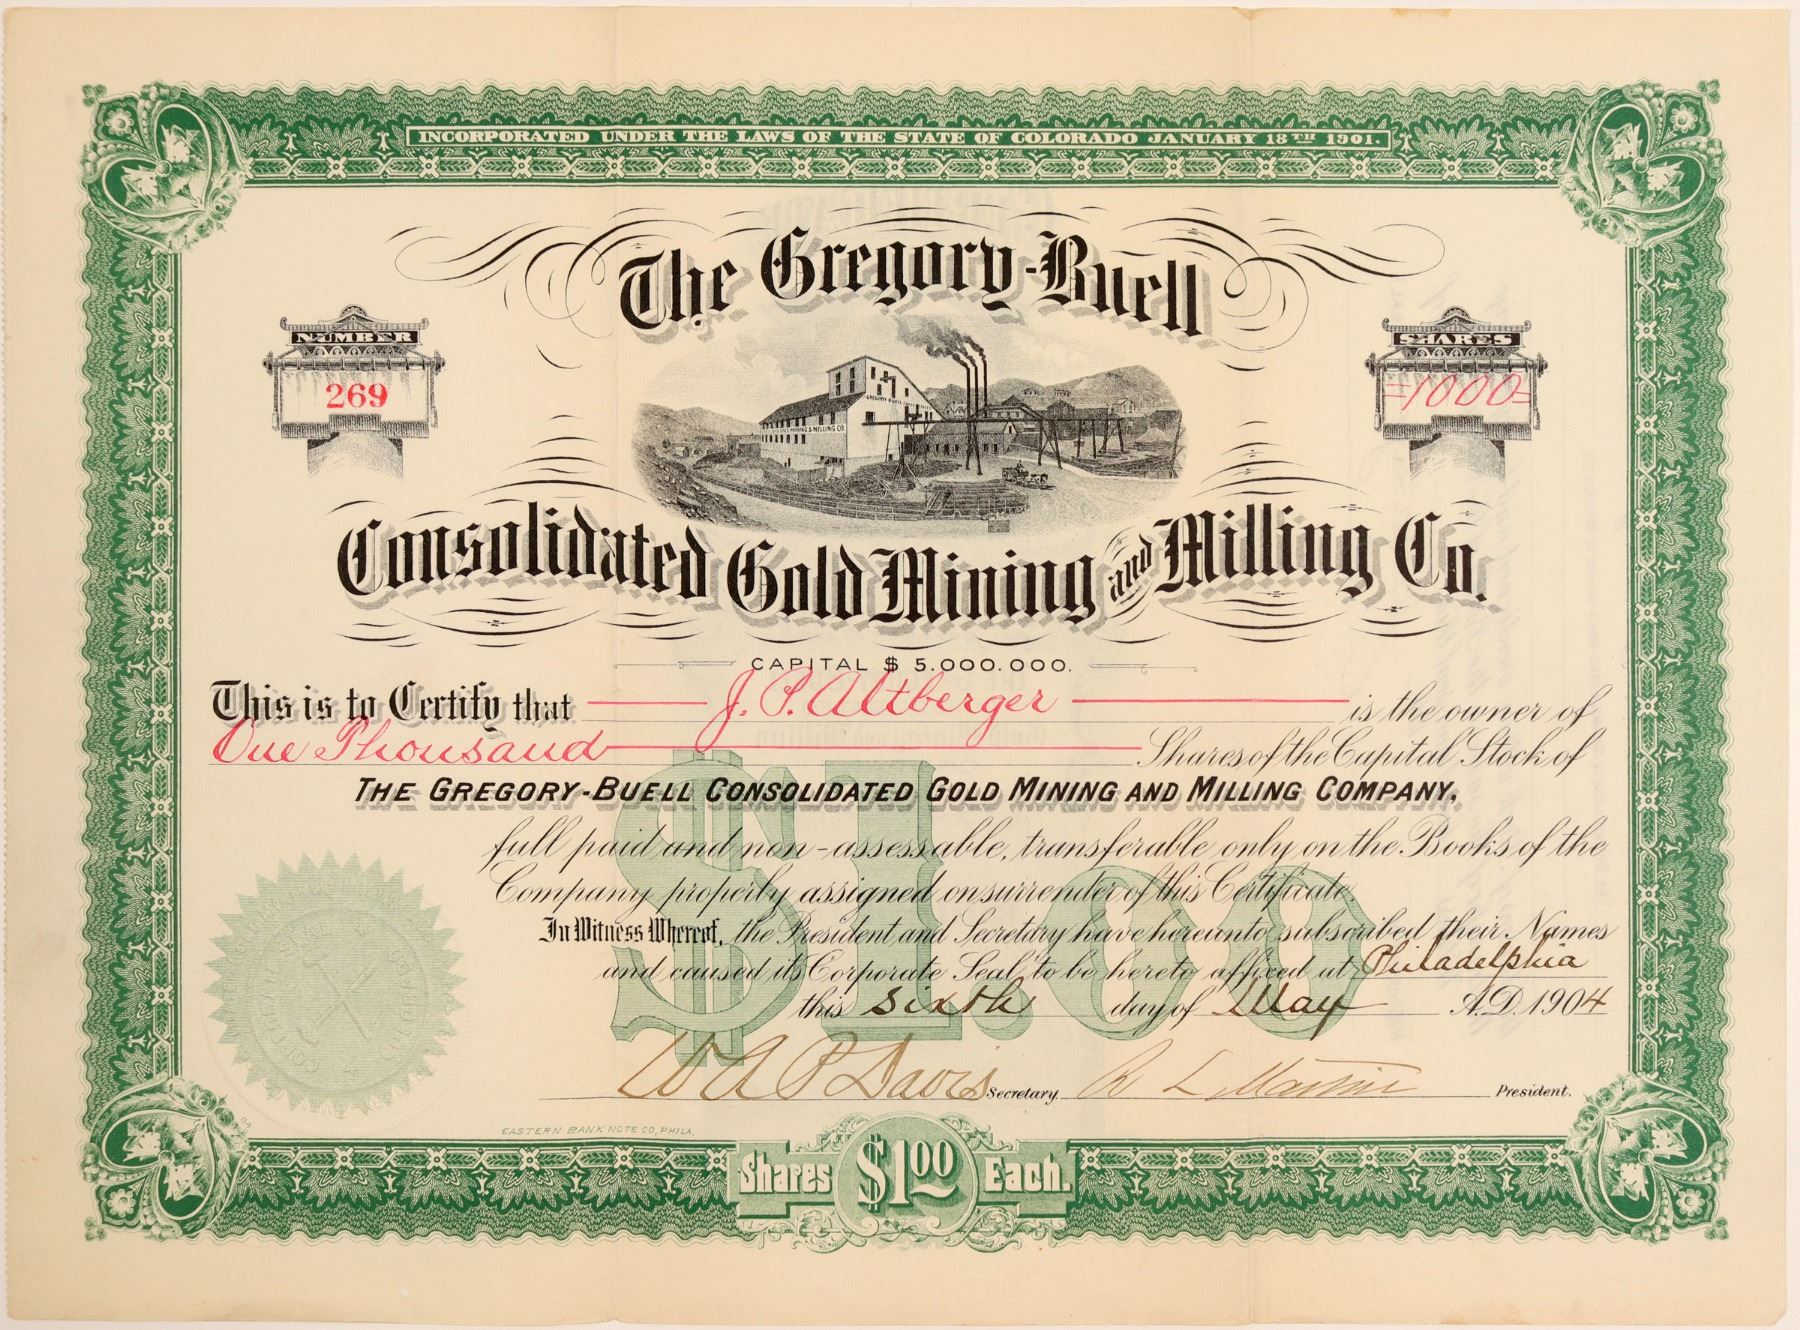 INCORPORATED UNDER THE LAWS OF THE STATE OF COLORADO JANUARY 18TH 1901.
The Gregory-Buell
NUMBER
269
SHARES
=1000=
GREGORY BUELL
GOLD MINING & MILLING CO.
Consolidated Gold Mining and Milling Co.
CAPITAL $ 5.000.000.
This is to Certify that J. P. Altberger is the owner of
One Thousand Shares of the Capital Stock of
THE GREGORY-BUELL CONSOLIDATED GOLD MINING AND MILLING COMPANY,
full paid and non-assessable, transferable only on the Books of the
Company properly assigned on surrender of this Certificate.
In Witness Whereof, the President and Secretary have hereunto subscribed their Names
and caused its Corporate Seal to be hereto affixed at Philadelphia
this sixth day of May A.D. 1904
$1.00
W A P Davis Secretary R L Martin President.
EASTERN BANK NOTE CO., PHILA.
Shares $1.00 Each.